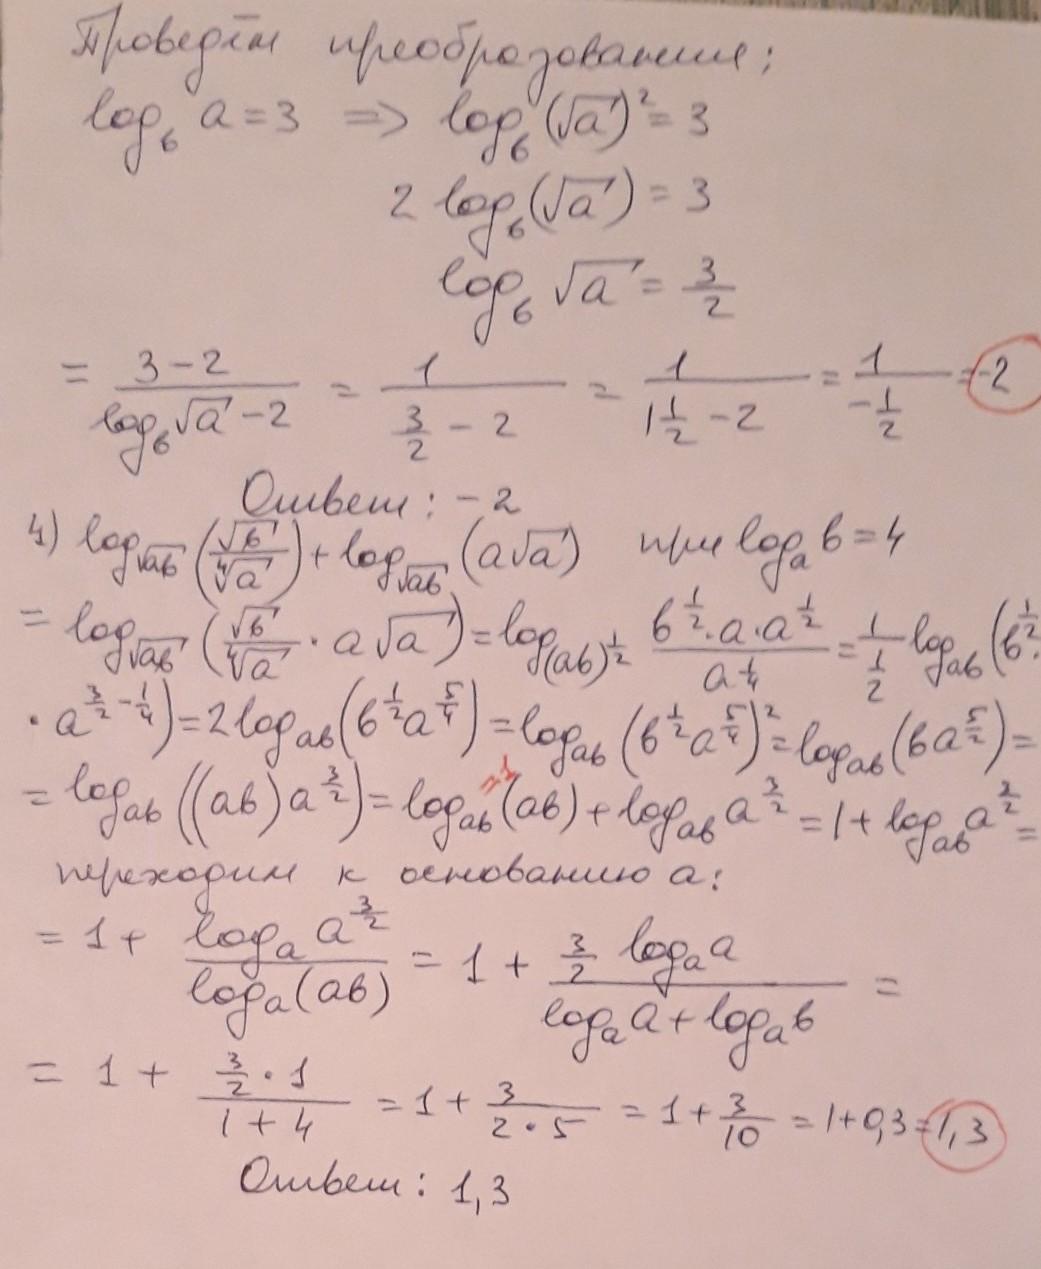 Проведём преобразования:
log_в a = 3 => log_в (√a)² = 3
2 log_в (√a) = 3
log_в √a = 3/2
= (3-2)/(log_в √a - 2) = 1/(3/2 - 2) = 1/(1 1/2 - 2) = 1/(-1/2) = -2
Ответ: -2
4) log_√aв (√в/⁴√a) + log_√aв (a√a) при log_a в = 4
= log_√aв (√в/⁴√a · a√a) = log_(aв)^½ (в^½ · a · a^½)/(a^¼) = 1/(1/2) log_aв (в^½ ·
· a^(3/2 - 1/4)) = 2 log_aв (в^½ a^(5/4)) = log_aв (в^½ a^(5/4))² = log_aв (вa^(5/2)) =
= log_aв ((aв)a^(3/2)) = log_aв (aв) + log_aв a^(3/2) = 1 + log_aв a^(3/2) =
=1
переходим к основанию a:
= 1 + (log_a a^(3/2))/(log_a (aв)) = 1 + (3/2 log_a a)/(log_a a + log_a в) =
= 1 + (3/2 · 1)/(1 + 4) = 1 + 3/(2 · 5) = 1 + 3/10 = 1 + 0,3 = 1,3
Ответ: 1,3